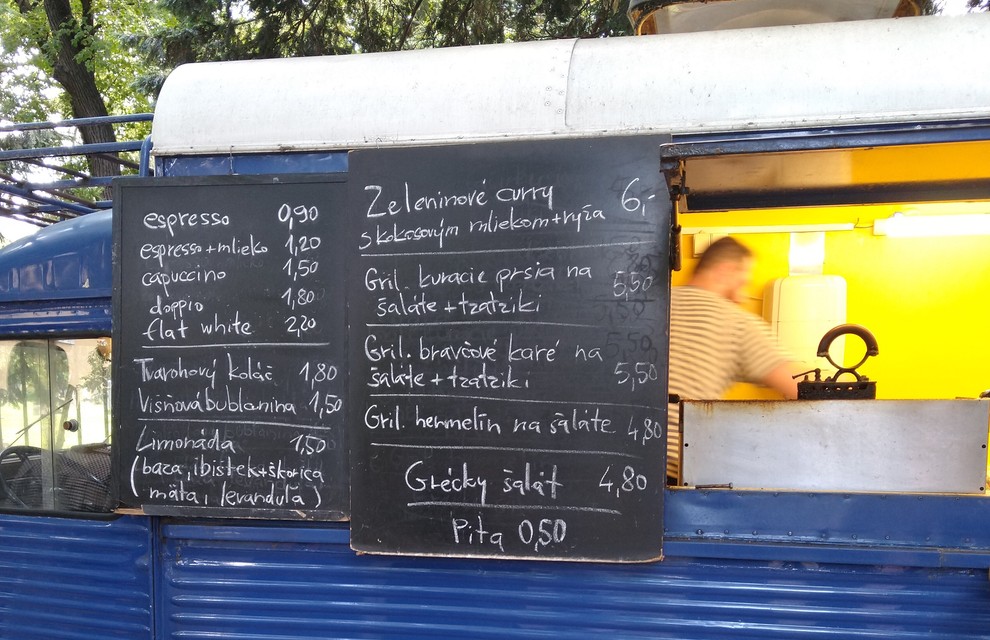 espresso 0,90
espresso+mlieko 1,20
capuccino 1,50
doppio 1,80
flat white 2,20
Tvarohový koláč 1,80
Višňová bublanina 1,50
Limonáda 1,50
(baza, ibištek+škorica
mäta, levandula)
Zeleninové curry 6,-
s kokosovým mliekom+ryža
Gril. kuracie prsia na 5,50
šaláte+tzatziki
Gril. bravčové karé na
šaláte+tzatziki 5,50
Gril. hermelín na šaláte 4,80
Grécky šalát 4,80
Pita 0,50